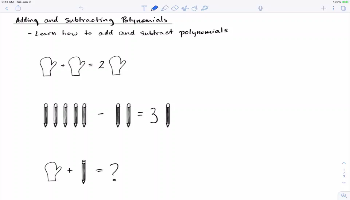 Adding and Subtracting Polynomials
- Learn how to add and subtract polynomials
+ = 2
- = 3
+ = ?